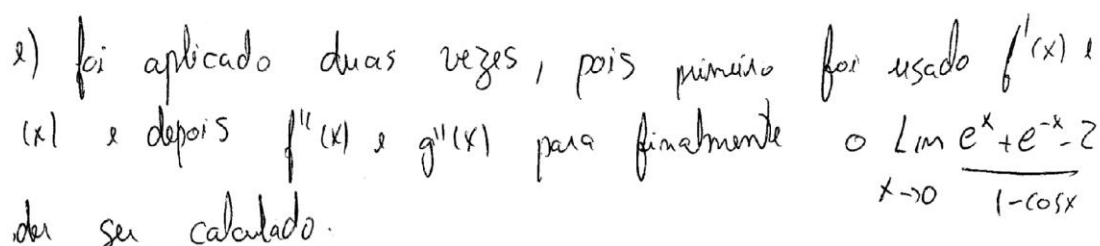 e) foi aplicado duas vezes, pois primeiro foi usado f'(x) e
(x) e depois f''(x) e g''(x) para finalmente o Lim e^x + e^-x - 2
x->0 1-cosx
der ser calculado.